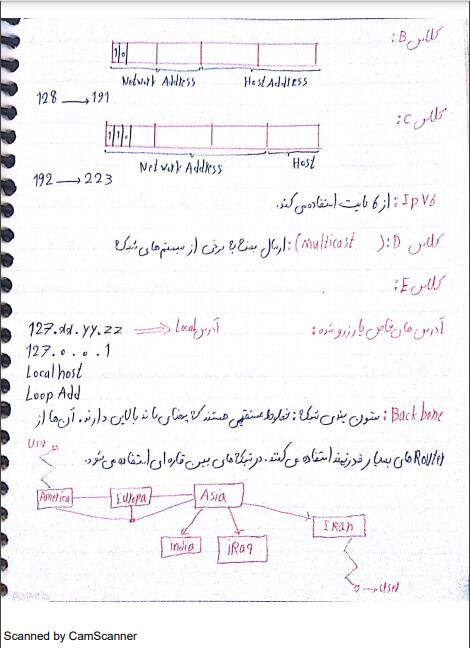 کلاس B:
1 | 0
Network Address Host Address
128 → 191
کلاس C:
1 | 1 | 0
Network Address Host
192 → 223
IPV6: از 6 بایت استفاده می‌کند.
کلاس D: (multicast): ارسال بسته به برخی از سیستم‌های شبکه
کلاس E:
آدرس های خاص یا رزرو شده:
127.xx.yy.zz ⇒ آدرس Local
127.0.0.1
Local host
Loop Add
Back bone: ستون بندی شبکه: خطوط مستقیمی هستند که پهنای باند بالایی دارند. آن‌ها از
Router های بسیار قدرتمند استفاده می‌کنند. در شبکه های بین قاره ای استفاده می‌شود.
User
America Europa Asia
IRan
India IRaq
User
Scanned by CamScanner